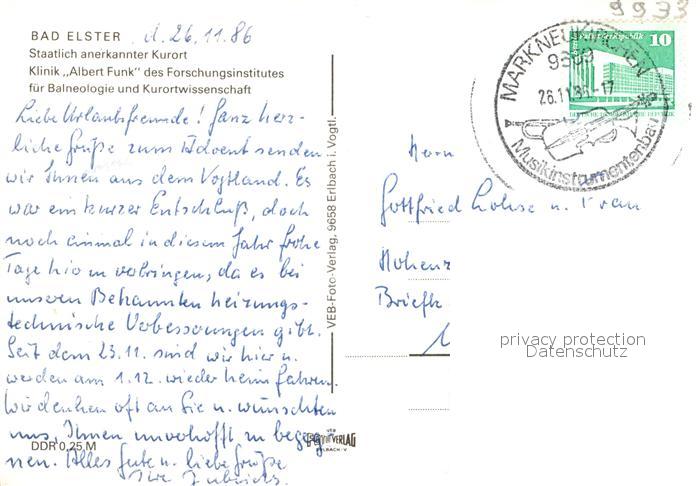 9933
BAD ELSTER
d. 26.11.86
Staatlich anerkannter Kurort
Klinik „Albert Funk" des Forschungsinstitutes
für Balneologie und Kurortwissenschaft
Liebe Urlaubsfreunde! Ganz herz-
liche Grüße zum Advent senden
wir Ihnen aus dem Vogtland. Es
war ein kurzer Entschluß, doch
noch einmal in diesem Jahr frohe
Tage hier zu verbringen, da es bei
unseren Bekannten heizungs-
technische Verbesserungen gibt.
Seit dem 23.11. sind wir hier u.
werden am 1.12. wieder heim fahren.
Wir denken oft an Sie u. wünschten
uns, Ihnen unverhofft zu begeg-
nen. Alles Gute u. liebe Grüße
Ihre
DDR 0,25 M
VEB-Foto-Verlag, 9658 Erlbach i. Vogtl.
VEB
FOTO VERLAG
ERLBACH-V
MARKNEUKIRCHEN
9659
26.11.86-17
Musikinstrumentenbau
10
DEUTSCHE DEMOKRATISCHE REPUBLIK
Herrn
Gottfried Lohse u. Frau
Hohenz
Briefk
privacy protection
Datenschutz